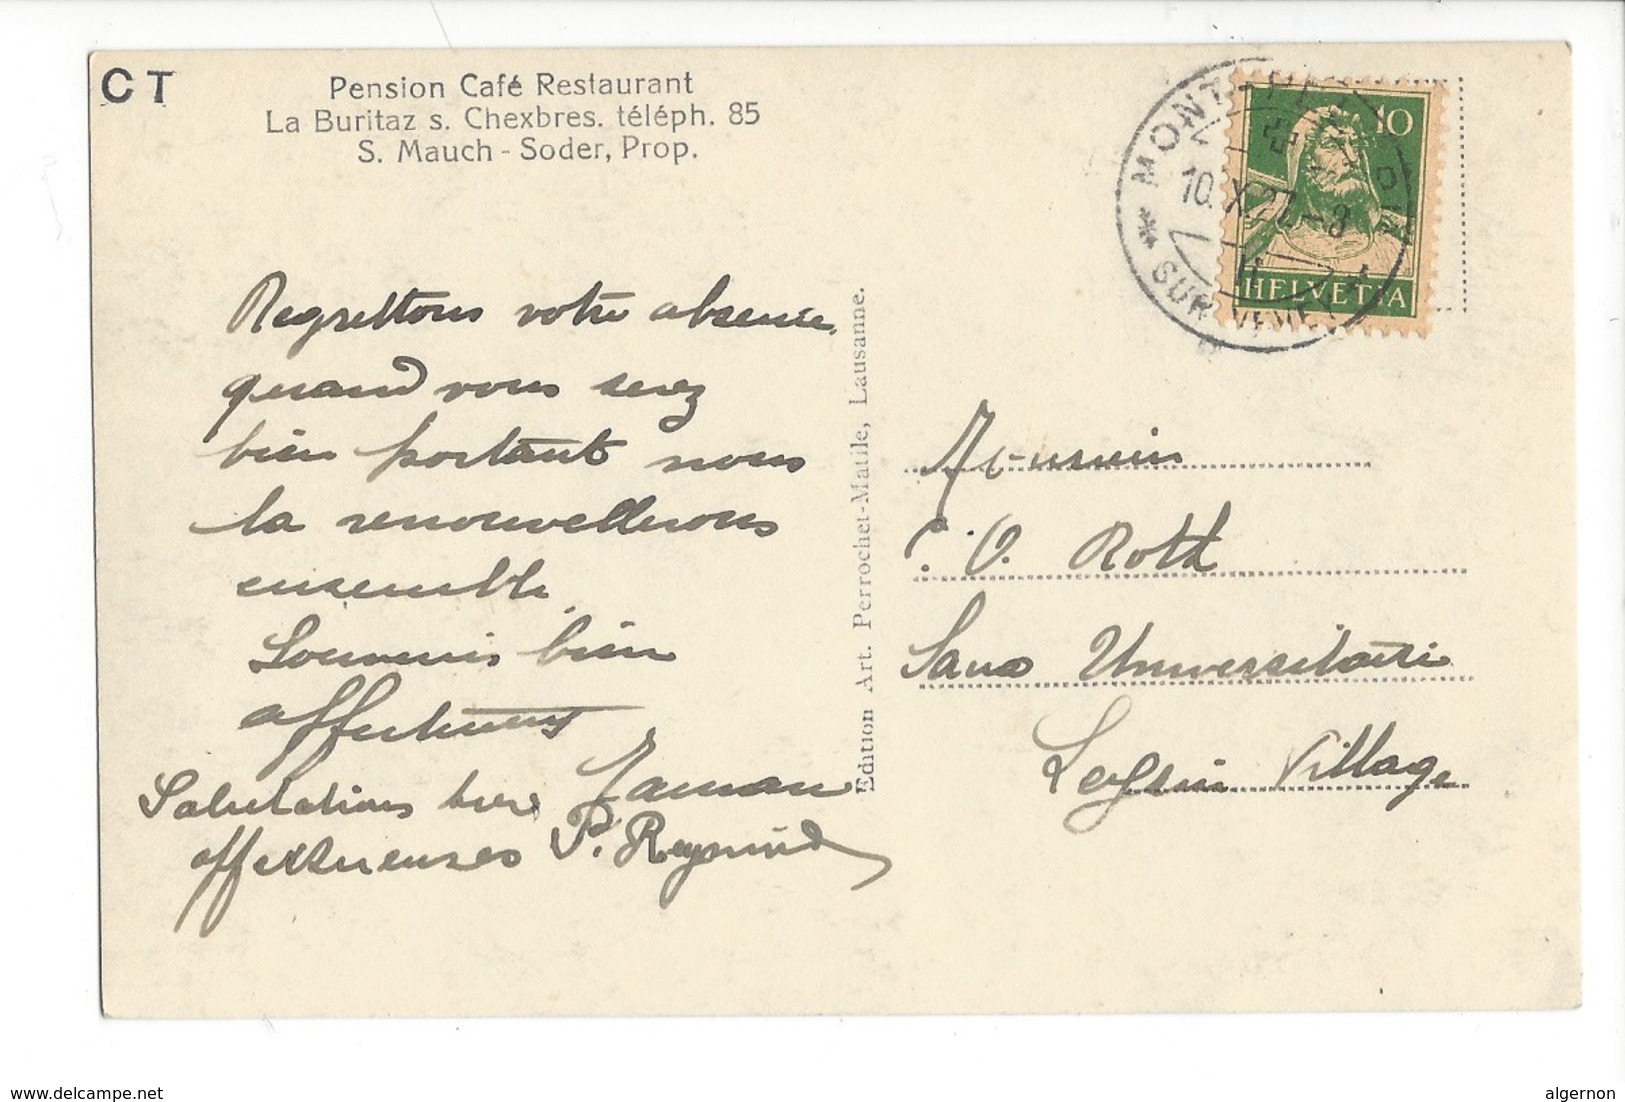 CT
Pension Café Restaurant
La Buritaz s. Chexbres. téléph. 85
S. Mauch - Soder, Prop.
MONT-PÉLERIN
10.X.27.-8
SUR VEVEY
10
HELVETIA
Regrettons votre absence,
quand vous serez
bien portant nous
la renouvellerons
ensemble.
Souvenirs bien
affectueux
Salutations
affectueuses P. Reymond
Edition Art. Perrochet-Matile, Lausanne.
Monsieur
O. Roth
Sana Universitaire
Leysin Village
www.delcampe.net
algernon